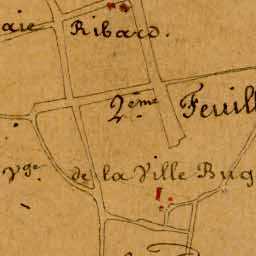 aie Ribard.
2.ème Feuill
Vge. de la Ville Bug